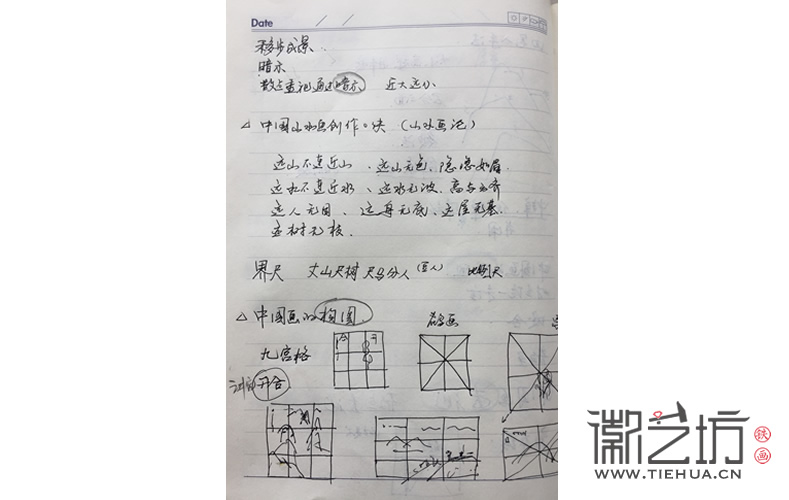 Date
移步成景
暗示
散点透视通过暗示 近大远小
△ 中国山水画创作口诀 (山水画论)
远山不连近山、远山无色,隐隐如眉
远水不连近水、远水无波,高与云齐
远人无目、远舟无底、远屋无基
远树无枝
界尺 丈山尺树尺马分人 (豆人) 比例尺
△ 中国画的构图
九宫格
开合
徽艺坊
铁画
WWW.TIEHUA.CN